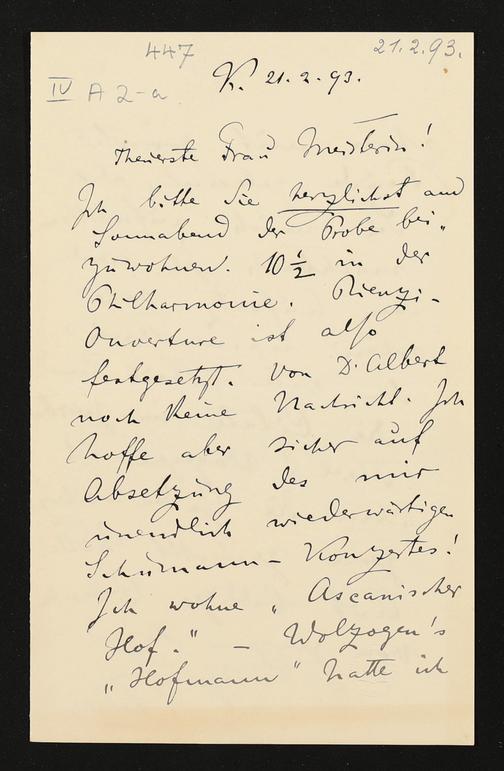 447
21.2.93.
IV A 2-a
K. 21.2.93.
Theuerste Frau Meisterin!
Ich bitte Sie herzlichst am
Sonnabend der Probe bei„
zuwohnen. 10 1/2 in der
Philharmonie. Rienzi-
Ouverture ist also
festgesetzt. Von D'Albert
noch keine Nachricht. Ich
hoffe aber sicher auf
Absetzung des mir
unendlich wiederwärtigen
Schumann-Konzertes!
Ich wohne „Ascanischer
Hof." – Wolzogen's
„Hofmann" hatte ich